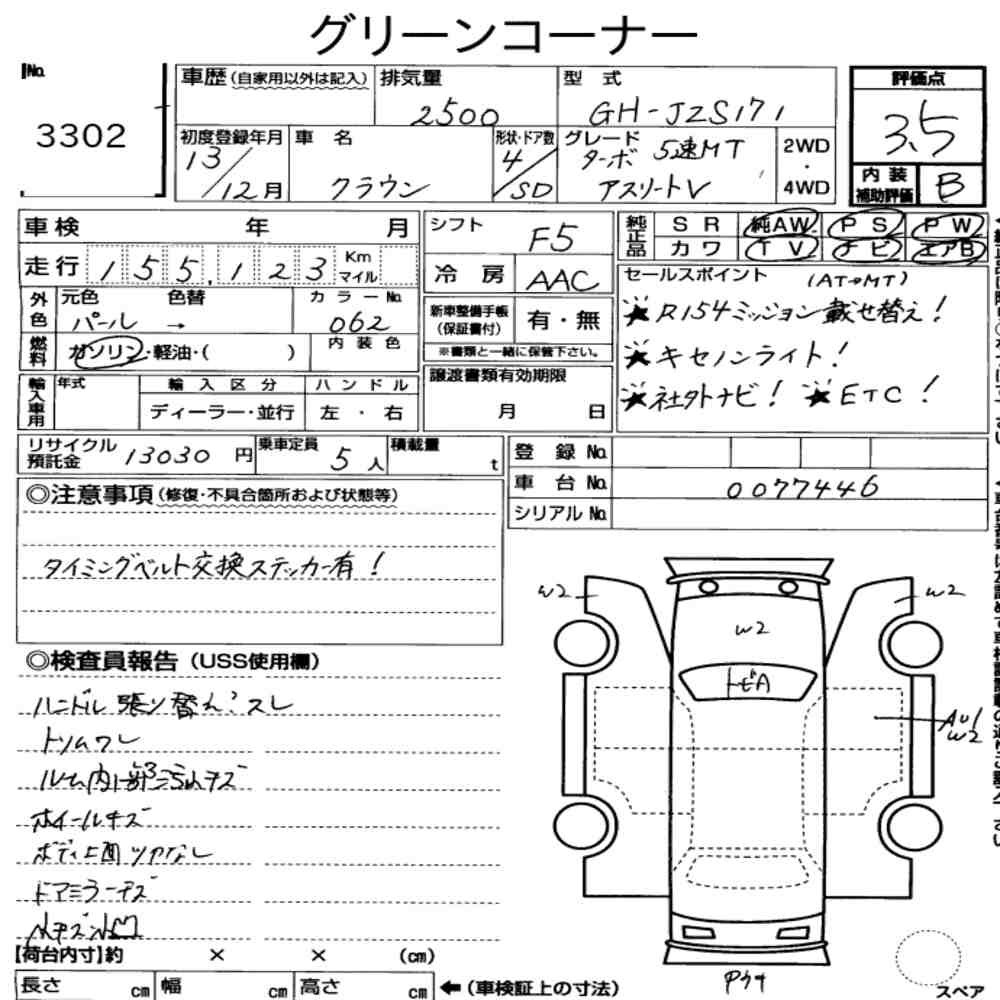 グリーンコーナー
No.
3302
車歴(自家用以外は記入)
排気量
2500
型 式
GH-JZS171
評価点
3.5
初度登録年月
13/12月
車 名
クラウン
形状・ドア数
4/SD
グレード
ターボ 5速MT
アスリートV
2WD
・
4WD
内 装
補助評価
B
車検 年 月
シフト
F5
純正品
SR 純AW PS PW
カワ TV ナビ エアB
走行 155,123 Km マイル
冷 房
AAC
セールスポイント (AT→MT)
★R154ミッション載せ替え!
★キセノンライト!
★社外ナビ! ★ETC!
外色
元色 色替
パール →
カラーNo.
062
新車整備手帳
(保証書付)
有・無
※書類と一緒に保管下さい。
燃料
ガソリン・軽油・( )
内装色
輸入車用
年式
輸入区分
ディーラー・並行
ハンドル
左・右
譲渡書類有効期限
月 日
リサイクル
預託金
13030 円
乗車定員
5人
積載量
t
登 録 No.
車 台 No.
0077446
シリアル No.
◎注意事項(修復・不具合箇所および状態等)
タイミングベルト交換ステッカー有!
◎検査員報告(USS使用欄)
ハンドル張り替え?スレ
トリムワレ
ルーム内部ヨゴレキズ
ホイールキズ
ボディ上面ツヤなし
ドアミラーキズ
小キズ小凹
W2
W2
W2
トビA
AU1
W2
Pクサ
スペア
【荷台内寸】約 × × (cm)
長さ cm 幅 cm 高さ cm ←(車検証上の寸法)